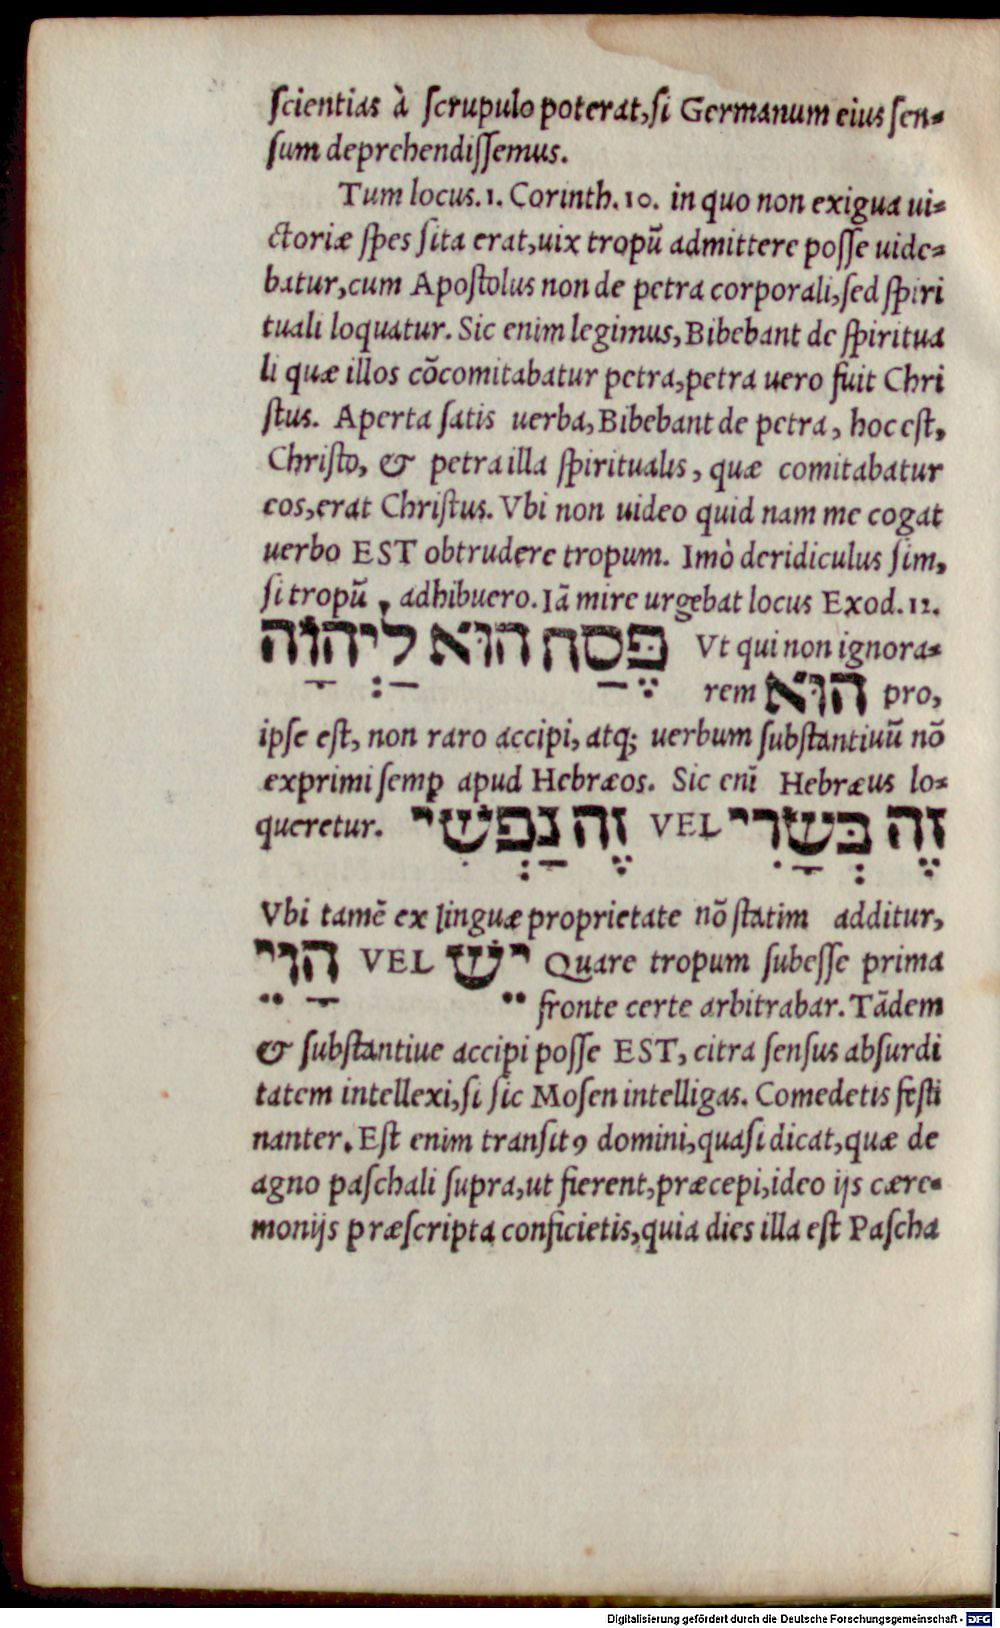 ſcientias à ſcrupulo poterat,ſi Germanum eius ſen-
ſum deprehendiſſemus.
Tum locus.1. Corinth.10. in quo non exigua ui-
ctoriæ ſpes ſita erat,uix tropũ admittere poſſe uide-
batur,cum Apoſtolus non de petra corporali,ſed ſpiri
tuali loquatur. Sic enim legimus,Bibebant de ſpiritua
li quæ illos cõcomitabatur petra,petra uero fuit Chri
ſtus. Aperta ſatis uerba,Bibebant de petra, hoc eſt,
Chriſto, & petra illa ſpiritualis, quæ comitabatur
eos,erat Chriſtus. Vbi non uideo quid nam me cogat
uerbo EST obtrudere tropum. Imò deridiculus ſim,
ſi tropũ, adhibuero. Iã mire urgebat locus Exod.12.
פֶּסַח הוּא לַיְהוָֹה Vt qui non ignora-
rem הוּא pro,
ipſe eſt, non raro accipi, atq; uerbum ſubſtantiuũ nõ
exprimi ſemꝑ apud Hebræos. Sic enĩ Hebræus lo-
queretur. זֶה נַפְשִׁי VEL זֶה בְּשָׂרִי
Vbi tamẽ ex linguæ proprietate nõ ſtatim additur,
הֲוֵי VEL יֵשׁ Quare tropum ſubeſſe prima
fronte certe arbitrabar. Tãdem
& ſubſtantiue accipi poſſe EST, citra ſenſus abſurdi
tatem intellexi,ſi ſic Moſen intelligas. Comedetis feſti
nanter. Eſt enim tranſitꝰ domini,quaſi dicat,quæ de
agno paſchali ſupra,ut fierent,præcepi,ideo ijs cære-
monijs præſcripta conficietis,quia dies illa eſt Paſcha
Digitalisierung gefördert durch die Deutsche Forschungsgemeinschaft - DFG